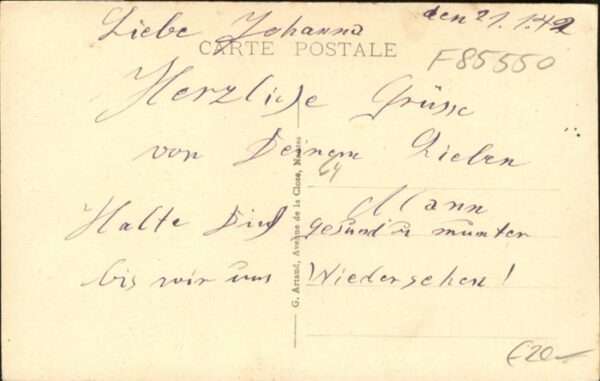 den 21.1.42
Liebe Johanna
CARTE POSTALE
F85550
Herzliche Grüsse
von Deinem Lieben
64
Mann
Halte Dich gesund u munter
bis wir uns Wiedersehen!
G. Artaud, Avenue de la Close, Nantes
€20-